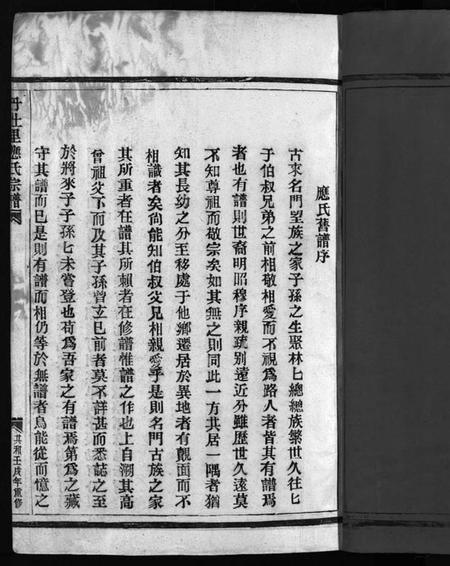 應氏舊譜序
古來名門望族之家子孫之生聚林匕總總族繁世久往匕
于伯叔兄弟之前相敬相愛而不視為路人者皆其有譜焉
者也有譜則世裔明昭穆序親疏別遠近分雖歷世久遠莫
不知尊祖而敬宗矣如其無之則同此一方共居一隅者猶
知其長幼之分至移處于他鄉遷居於異地者有覿面而不
相識者矣尚能知伯叔父兄相親愛乎是則名門古族之家
其所重者在譜其所賴者在修譜惟譜之作也上自溯其高
曾祖父下而及其子孫曾玄已前者莫不詳甚而悉誌之至
於將來子子孫匕未嘗登也苟為吾家之有譜焉第為之藏
守其譜而已是則有譜而相仍等於無譜者烏能從而憶之
丹杜里應氏宗譜
壬戌年重修